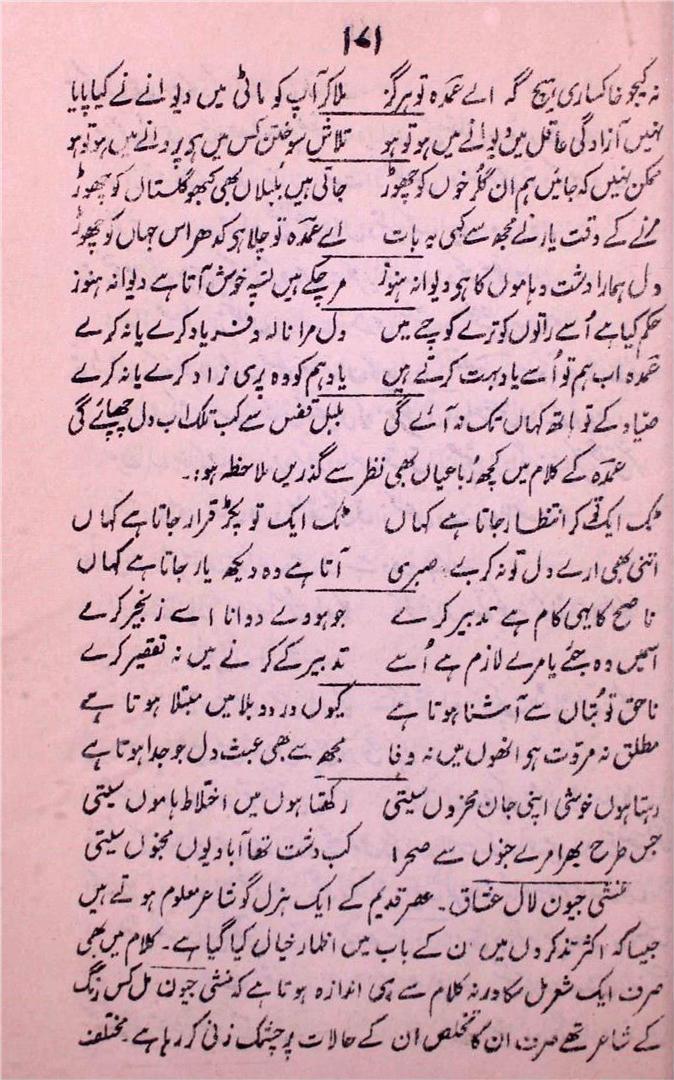 ۱۷۱
نہ کیجو خاکساری ہیچ گہ اے عمدہ تو ہرگز ملا کر آپ کو ماٹی میں دیوانے نے کیا پایا
نہیں آزادگی عاقل میں دیوانے میں ہو تو ہو تلاش سوختن کس میں ہی پروانے میں ہو تو ہو
ممکن نہیں کہ جائیں ہم ان گلرخوں کو چھوڑ جاتی ہیں بلبلاں بھی کبھو گلستاں کو چھوڑ
مرنے کے وقت یار نے مجھ سے کہی یہ بات اے عمدہ تو چلا ہی کدھر اس جہاں کو چھوڑ
دل ہمارا دشت و ہاموں کا ہی دیوانہ ہنوز مر چکے ہیں تسپہ خوش آتا ہے دیوانہ ہنوز
حکم کیا ہے اُسے راتوں کو ترے کوچے میں دل مرا نالہ و فریاد کرے یا نہ کرے
عمدہ اب ہم تو اُسے یاد بہت کرتے ہیں یاد ہم کو وہ پری زاد کرے یا نہ کرے
صیاد کے تو ہاتھ کہاں تک نہ آئے گی بلبل قفس سے کب تلک اب دل چھپائے گی
عمدہ کے کلام میں کچھ رباعیاں بھی نظر سے گذریں ملاحظہ ہو:۔
ٹک ایک تو کر انتظار جاتا ہے کہاں ٹک ایک تو پکڑ قرار جاتا ہے کہاں
اتنی بھی ارے دل تو نہ کر بے صبری آتا ہے وہ دیکھ یار جاتا ہے کہاں
ناصح کا یہی کام ہے تدبیر کرے جو ہووے دوانا اسے زنجیر کرے
اسمیں وہ جئے یا مرے لازم ہے اُسے تدبیر کے کرنے میں نہ تقصیر کرے
ناحق تو بُتاں سے آشنا ہوتا ہے کیوں درد و بلا میں مبتلا ہوتا ہے
مطلق نہ مروت ہی انھوں میں نہ وفا مجھ سے بھی عبث دل جو جدا ہوتا ہے
رہتا ہوں خوشی اپنی جان محزوں سیتی رکھتا ہوں میں اختلاط ہاموں سیتی
جس طرح بھرا مرے جنوں سے صحرا کب دشت تھا آباد یوں مجنوں سیتی
منشی جیون لال عشاق۔ عصر قدیم کے ایک ہزل گو شاعر معلوم ہوتے ہیں
جیسا کہ اکثر تذکروں میں ان کے باب میں اظہار خیال کیا گیا ہے۔ کلام میں بھی
صرف ایک شعر مل سکا ورنہ کلام سے ہی اندازہ ہوتا ہے کہ منشی جیون مل کس رنگ
کے شاعر تھے صرف ان کا تخلص ان کے حالات پر چشمک زنی کر رہا ہے۔ مختلف